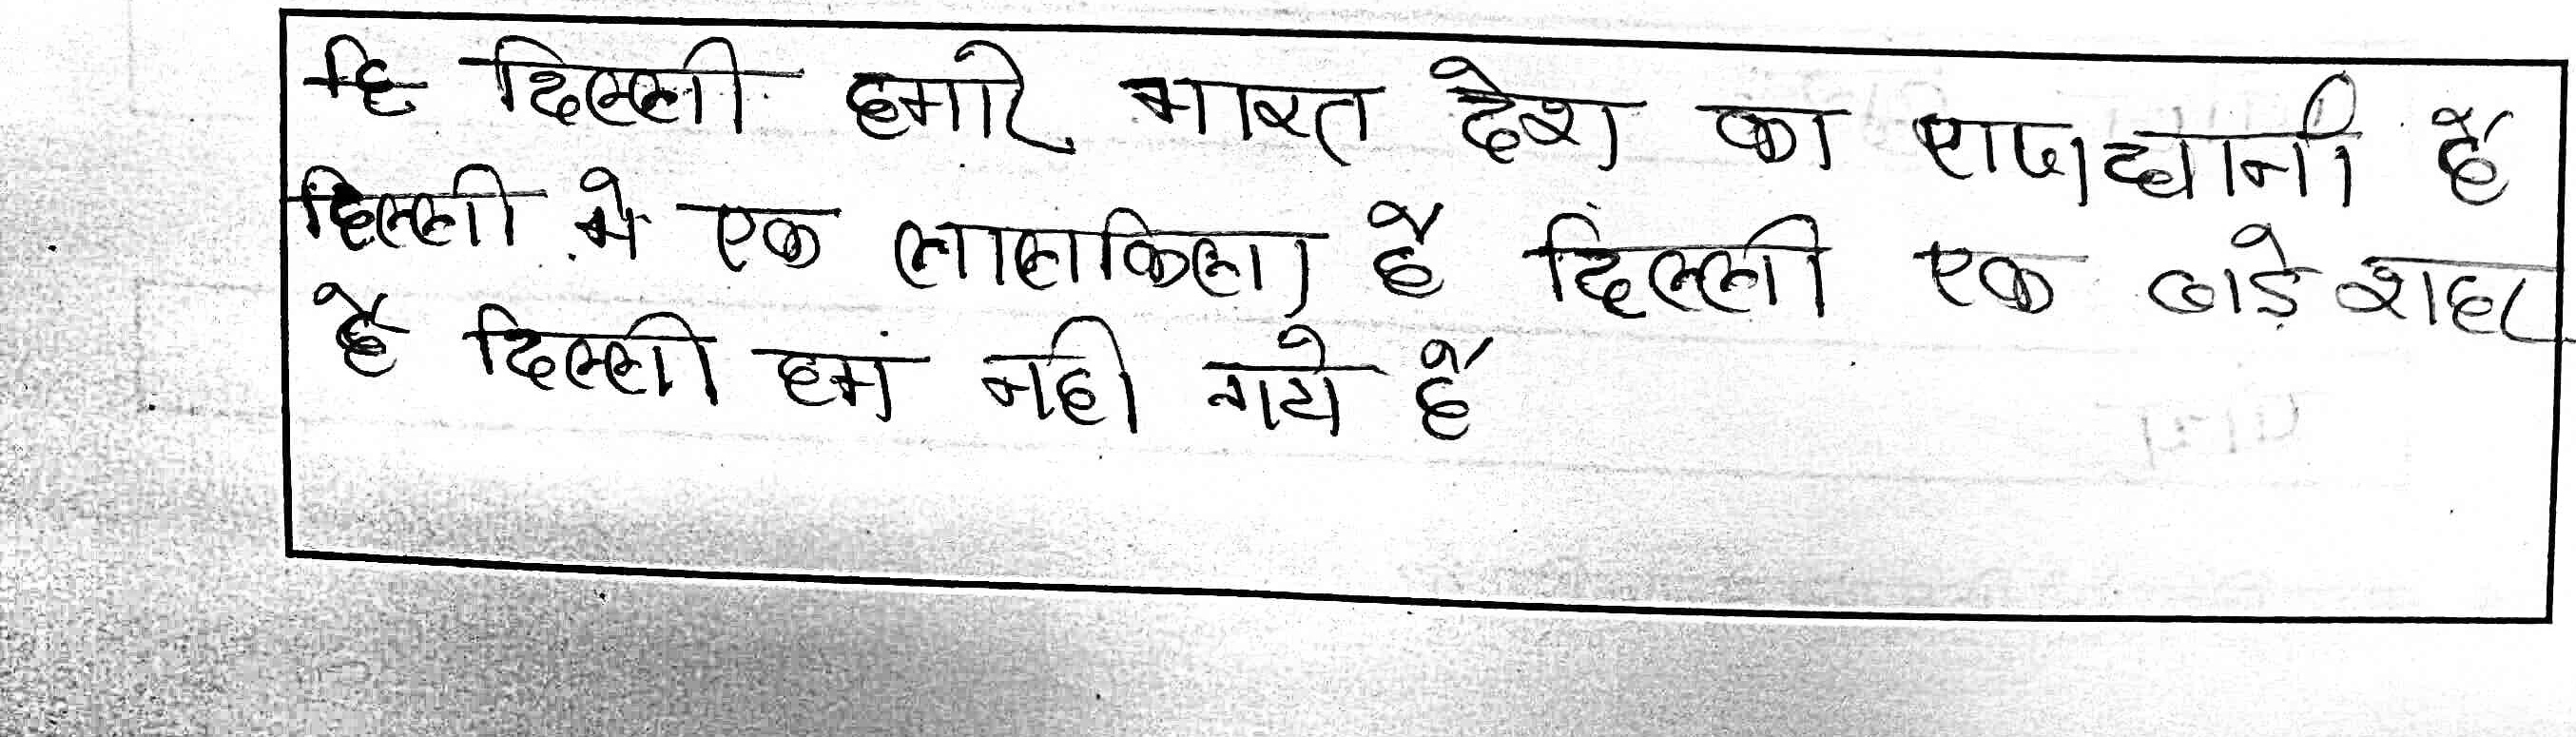 दि दिल्ली हमारे भारत देश का राजधानी हैं
दिल्ली मे एक लालकिला है दिल्ली एक बाड़े शहर
है दिल्ली हम नही गये हैं